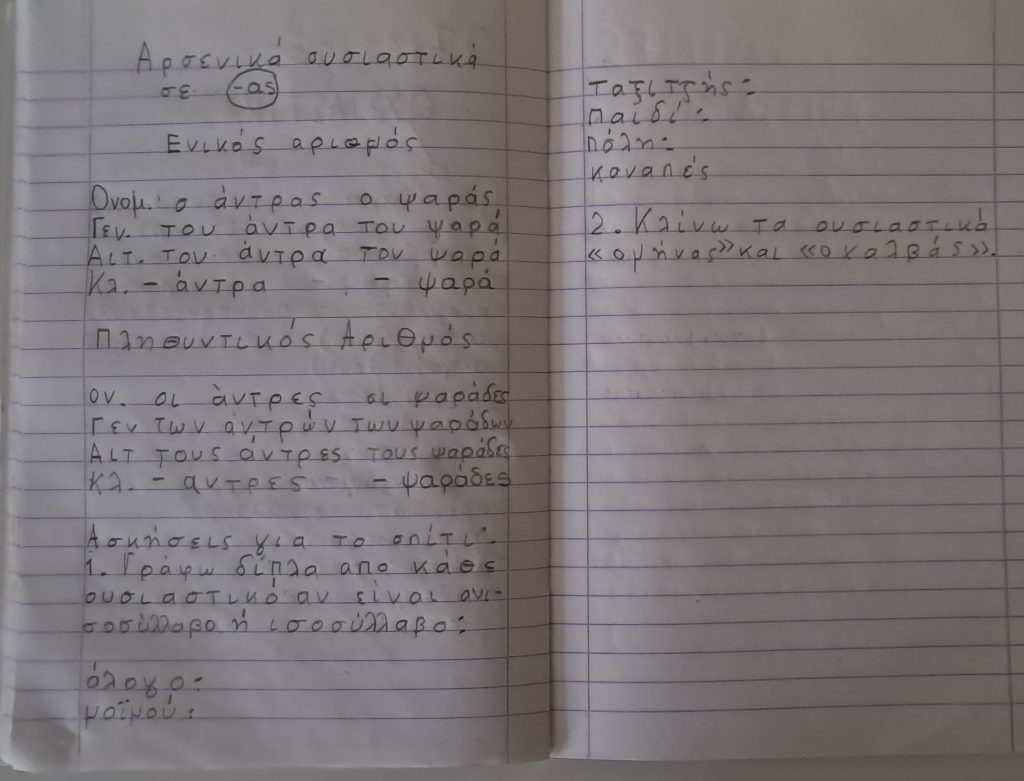 Αρσενικά ουσιαστικά
σε -ας
Ενικός αρισμός
Ονομ. ο άντρας ο ψαράς
Γεν. του άντρα του ψαρά
Αιτ. τον άντρα τον ψαρά
Κλ. - άντρα - ψαρά
Πληθυντικός Αριθμός
ον. οι άντρες οι ψαράδες
Γεν των αντρών των ψαράδων
Αιτ τους άντρες τους ψαράδες
Κλ. - αντρες - ψαράδες
Ασκήσεις για το σπίτι:
1. Γράφω δίπλα απο κάθε
ουσιαστικό αν είναι ανι-
σοσύλλαβο ή ισοσύλλαβο:
άλογο:
μαϊμού:
ταξιτζής:
παιδί:
πόλη:
καναπές
2. Κλίνω τα ουσιαστικά
«ο μήνας» και «ο χαλβάς».